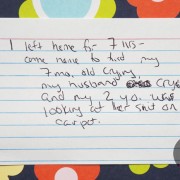 I left home for 7 hrs -
came home to find my
7 mo. old crying,
my husband crying
and my 2 yo. was
looking at her shit on
carpet.